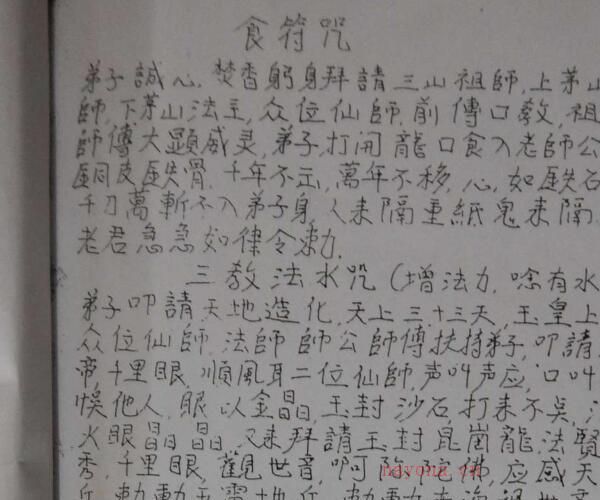 食符咒
弟子誠心.焚香躬身拜請三山祖師,上茅山
師,下茅山法主,众位仙師.前傳口教,祖
師傅大顯威灵,弟子,打開龍口食入老師公
銅皮鉄骨.千年不 萬年不移,心,如鉄石
千刀萬斬不入弟子身,人来隔重紙鬼来隔
老君急急如律令勅.
三教法水咒(增法力.唸有水
弟子叩請天地造化,天上三十三天,玉皇上
众位仙師.法師師公師傅扶持弟子,叩請
帝,千里眼.順風耳二位仙師,声叫声应,口叫
悞他人,眼以金晶,玉封沙石打来不
火眼晶晶.又来拜請玉封崑崗龍,法賢
秀,千里眼,觀世音,啊 佛,应感天
nayona.cn